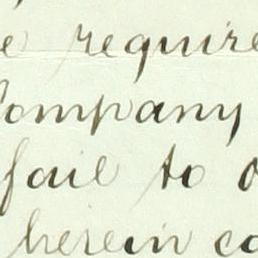 e require
Company
fail to o
herein co